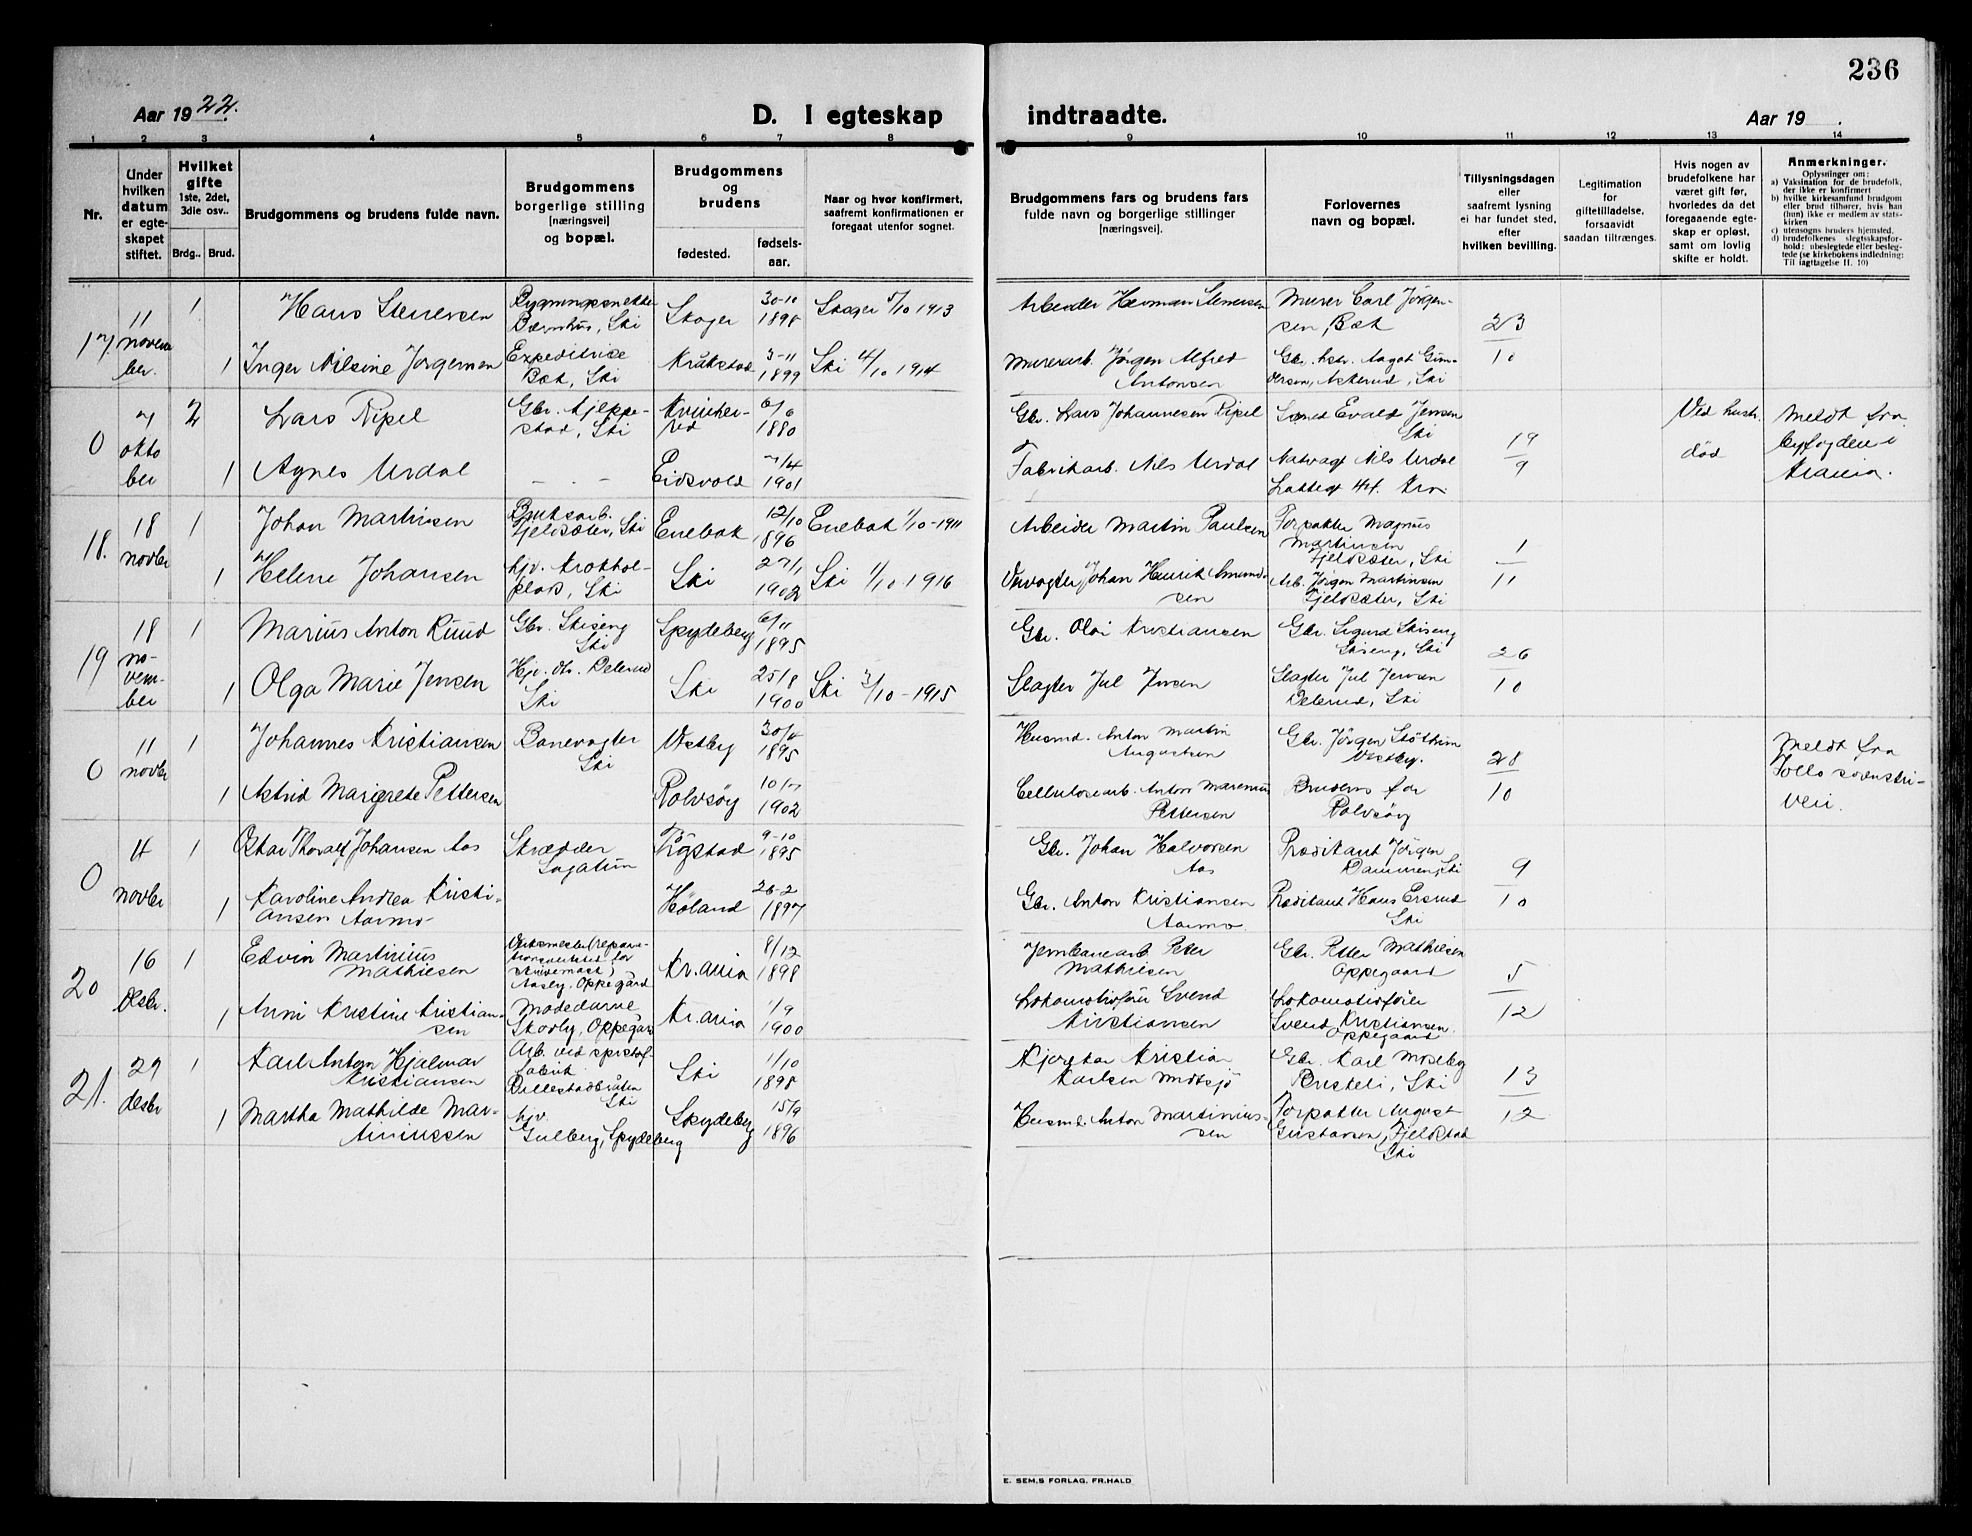 236
Aar 1922.
D. I egteskap indtraadte.
Aar 19
1 2 3 4 5 6 7 8 9 10 11 12 13 14
Nr.
Under hvilken datum er egteskapet stiftet.
Hvilket gifte 1ste, 2det, 3die osv..
Brdg.. Brud.
Brudgommens og brudens fulde navn.
Brudgommens borgerlige stilling [næringsvei] og bopæl.
Brudgommens og brudens
fødested. fødsels-aar.
Naar og hvor konfirmert, saafremt konfirmationen er foregaat utenfor sognet.
Brudgommens fars og brudens fars fulde navn og borgerlige stillinger [næringsvei].
Forlovernes navn og bopæl.
Tillysningsdagen eller saafremt lysning ei har fundet sted, efter hvilken bevilling.
Legitimation for giftetilladelse, forsaavidt saadan tiltrænges.
Hvis nogen av brudefolkene har været gift før, hvorledes da det foregaaende egteskap er opløst, samt om lovlig skifte er holdt.
Anmerkninger.
Oplysninger om:
a) Vaksination for de brudefolk, der ikke er konfirmert
b) hvilke kirkesamfund brudgom eller brud tilhører, hvis han (hun) ikke er medlem av statskirken
c) utensogns bruders hjemsted.
d) brudefolkenes slegtsskapsforhold: ubeslegtede eller beslegtede (se kirkebokens indledning: Til iagttagelse II. 10)
17. 11 novem ber. 1 Hans Stenersen
Bygningssnekker Bærnhus, Ski
Skoger 30-10 1898 Skoger 5/10 1913
Arbeider Herman Stenersen
Murer Carl Jörgensen, Bæk
23/10
1 Inger Nilsine Jörgensen
Expeditrice Bæk, Ski
Kråkstad 3-11 1899 Ski 4/10 1914
Murerarb. Jörgen Alfred Antonsen
Gbr. hstr. Aagot Gundersen, Askerud, Ski
0 7 okto ber 2 Lars Ripel
Gbr. Kjeppestad, Ski
Kvinherred 6/6 1880
Gbr. Lars Johannesen Ripel
Evald Jensen Ski
19/9
Ved hustr. död
Meldt fra byfogden i Krania.
1 Agnes Urdal
- - -
Eidsvold 7/4 1901
Fabrikarb. Nils Urdal
Natvagt Nils Urdal
44. Kra.
18. 18 novbr 1 Johan Martinsen
Bruksarb. Fjeldsæter, Ski
Enebak 12/10 1896 Enebak 1/10-1911
Arbeider Martin Paulsen
Forpakter Magnus Martinsen Fjeldsæter, Ski
1/11
1 Helene Johansen
hjv. Krokholplass, Ski
Ski 27/1 1902 Ski 1/10-1916
Johan Henrik Amundsen
Arb. Jörgen Martinsen Fjeldsæter, Ski
19 18 no-vem-ber 1 Marius Anton Ruud
Gbr. Skiseng Ski
Spydeberg 6/11 1895
Gbr. Olai Kristiansen
Gbr. Sigurd Skiseng Skiseng, Ski
26/10
1 Olga Marie Jensen
Ski
Ski 25/8 1900 Ski 3/10-1915
Slagter Jul Jensen
Slagter Jul Jensen Ski
0 11 novbr 1 Johannes Kristiansen
Banevogter Ski
Vestby 1895
Husmd. Anton Martin Augustsen
Gbr. Jörgen Vestby.
28/10
Meldt fra Follo sorenskriveri.
1 Astrid Margrete Pettersen
Rolvsöy 10/7 1902
Cellulosearb. Anton Marenius Pettersen
Brudens far Rolvsöy
0 4 novbr 1 Oskar Thoralf Johansen Aas
Skrædder Sagatun
Trögstad 9-10 1895
Gbr. Johan Halvorsen Aas
Prædikant Jörgen Dammen, Ski
9/10
1 Karoline Andrea Kristiansen Aarmo
Höland 26-2 1897
Gbr. Anton Kristiansen Aarmo.
Prædikant Hans Ersrud Ski
20 16 desbr. 1 Edvin Martinius Mathiesen
Verksmester Oppegård
Kr.ania 8/12 1898
Jernbanearb. Peter Mathiesen
Gbr. Petter Mathiesen Oppegaard
5/12
1 Anni Kristine Kristiansen
Modedame Skodby, Oppegård
Kr.ania 1/9 1900
Lokomotivförer Svend Kristiansen
Lokomotivförer Svend Kristiansen Oppegaard
21. 29 desbr 1 Karl Anton Hjalmar Kristiansen
Arb. ved sprstof-fabrik Ski
Ski 1/10 1898
Kristian Karlsen Midtsjö
Gbr. Karl Moseby Ski
13/12
1 Martha Mathilde Mar-tiniussen
hjv. Gulberg, Spydeberg
Spydeberg 15/9 1896
Husmd. Anton Martinius-sen
Forpakter August Gustavsen, Fjeldstad Ski
E. SEM.S FORLAG, FR.HALD